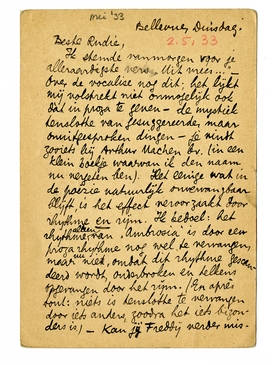 mei '33
Bellevue, Dinsdag.
2.5.33
Beste Rudie,
Ik stemde vanmorgen voor je
alleraardigste vers "Uit vrees..." -
Over de vocalise nog dit: het lijkt
mij volstrekt niet onmogelijk ook
dàt in proza te geven - de muziek
tenslotte van gesuggereerde, maar
onuitgesproken dingen - je vindt
zooiets bij Arthur Machen bv. (in een
klein boekje waarvan ik den naam
nu vergeten ben). Het eenige wat in
de poëzie natuurlijk onvervangbaar
blijft is het effect veroorzaakt door
rhythme en rijm. Ik bedoel: het
rhythme alleen van 'Ambrosia' is door een
proza rhythme nog wel te vervangen,
maar niet, omdat dit rhythme gescan-
deerd wordt, onderbroken en telkens
opgevangen door het rijm. (En après
tout: niets is tenslotte te vervangen
door iets anders, zoodra het iets bizon-
ders is) - Kan jij Freddy verder mis-